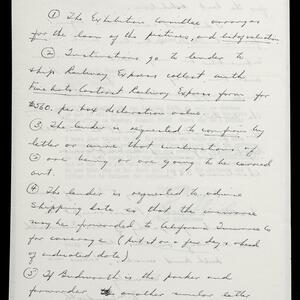 ① The Exhibition Committee arranges
for the loan of the pictures, and
② Instructions go to lender to
ship Railway Express collect with
Contract Railway Express form for
$560. per box declaration value.
③ The lender is requested to confirm by
letter or wire that instructions of
② are being or are going to be carried
out.
④ The lender is requested to advise
shipping date so that the insurance
may be forwarded to California Insurance Co
for coverage (put on a few days ahead
of indicated date).
⑤ If Budworth is the packer and
forwarder another similar letter